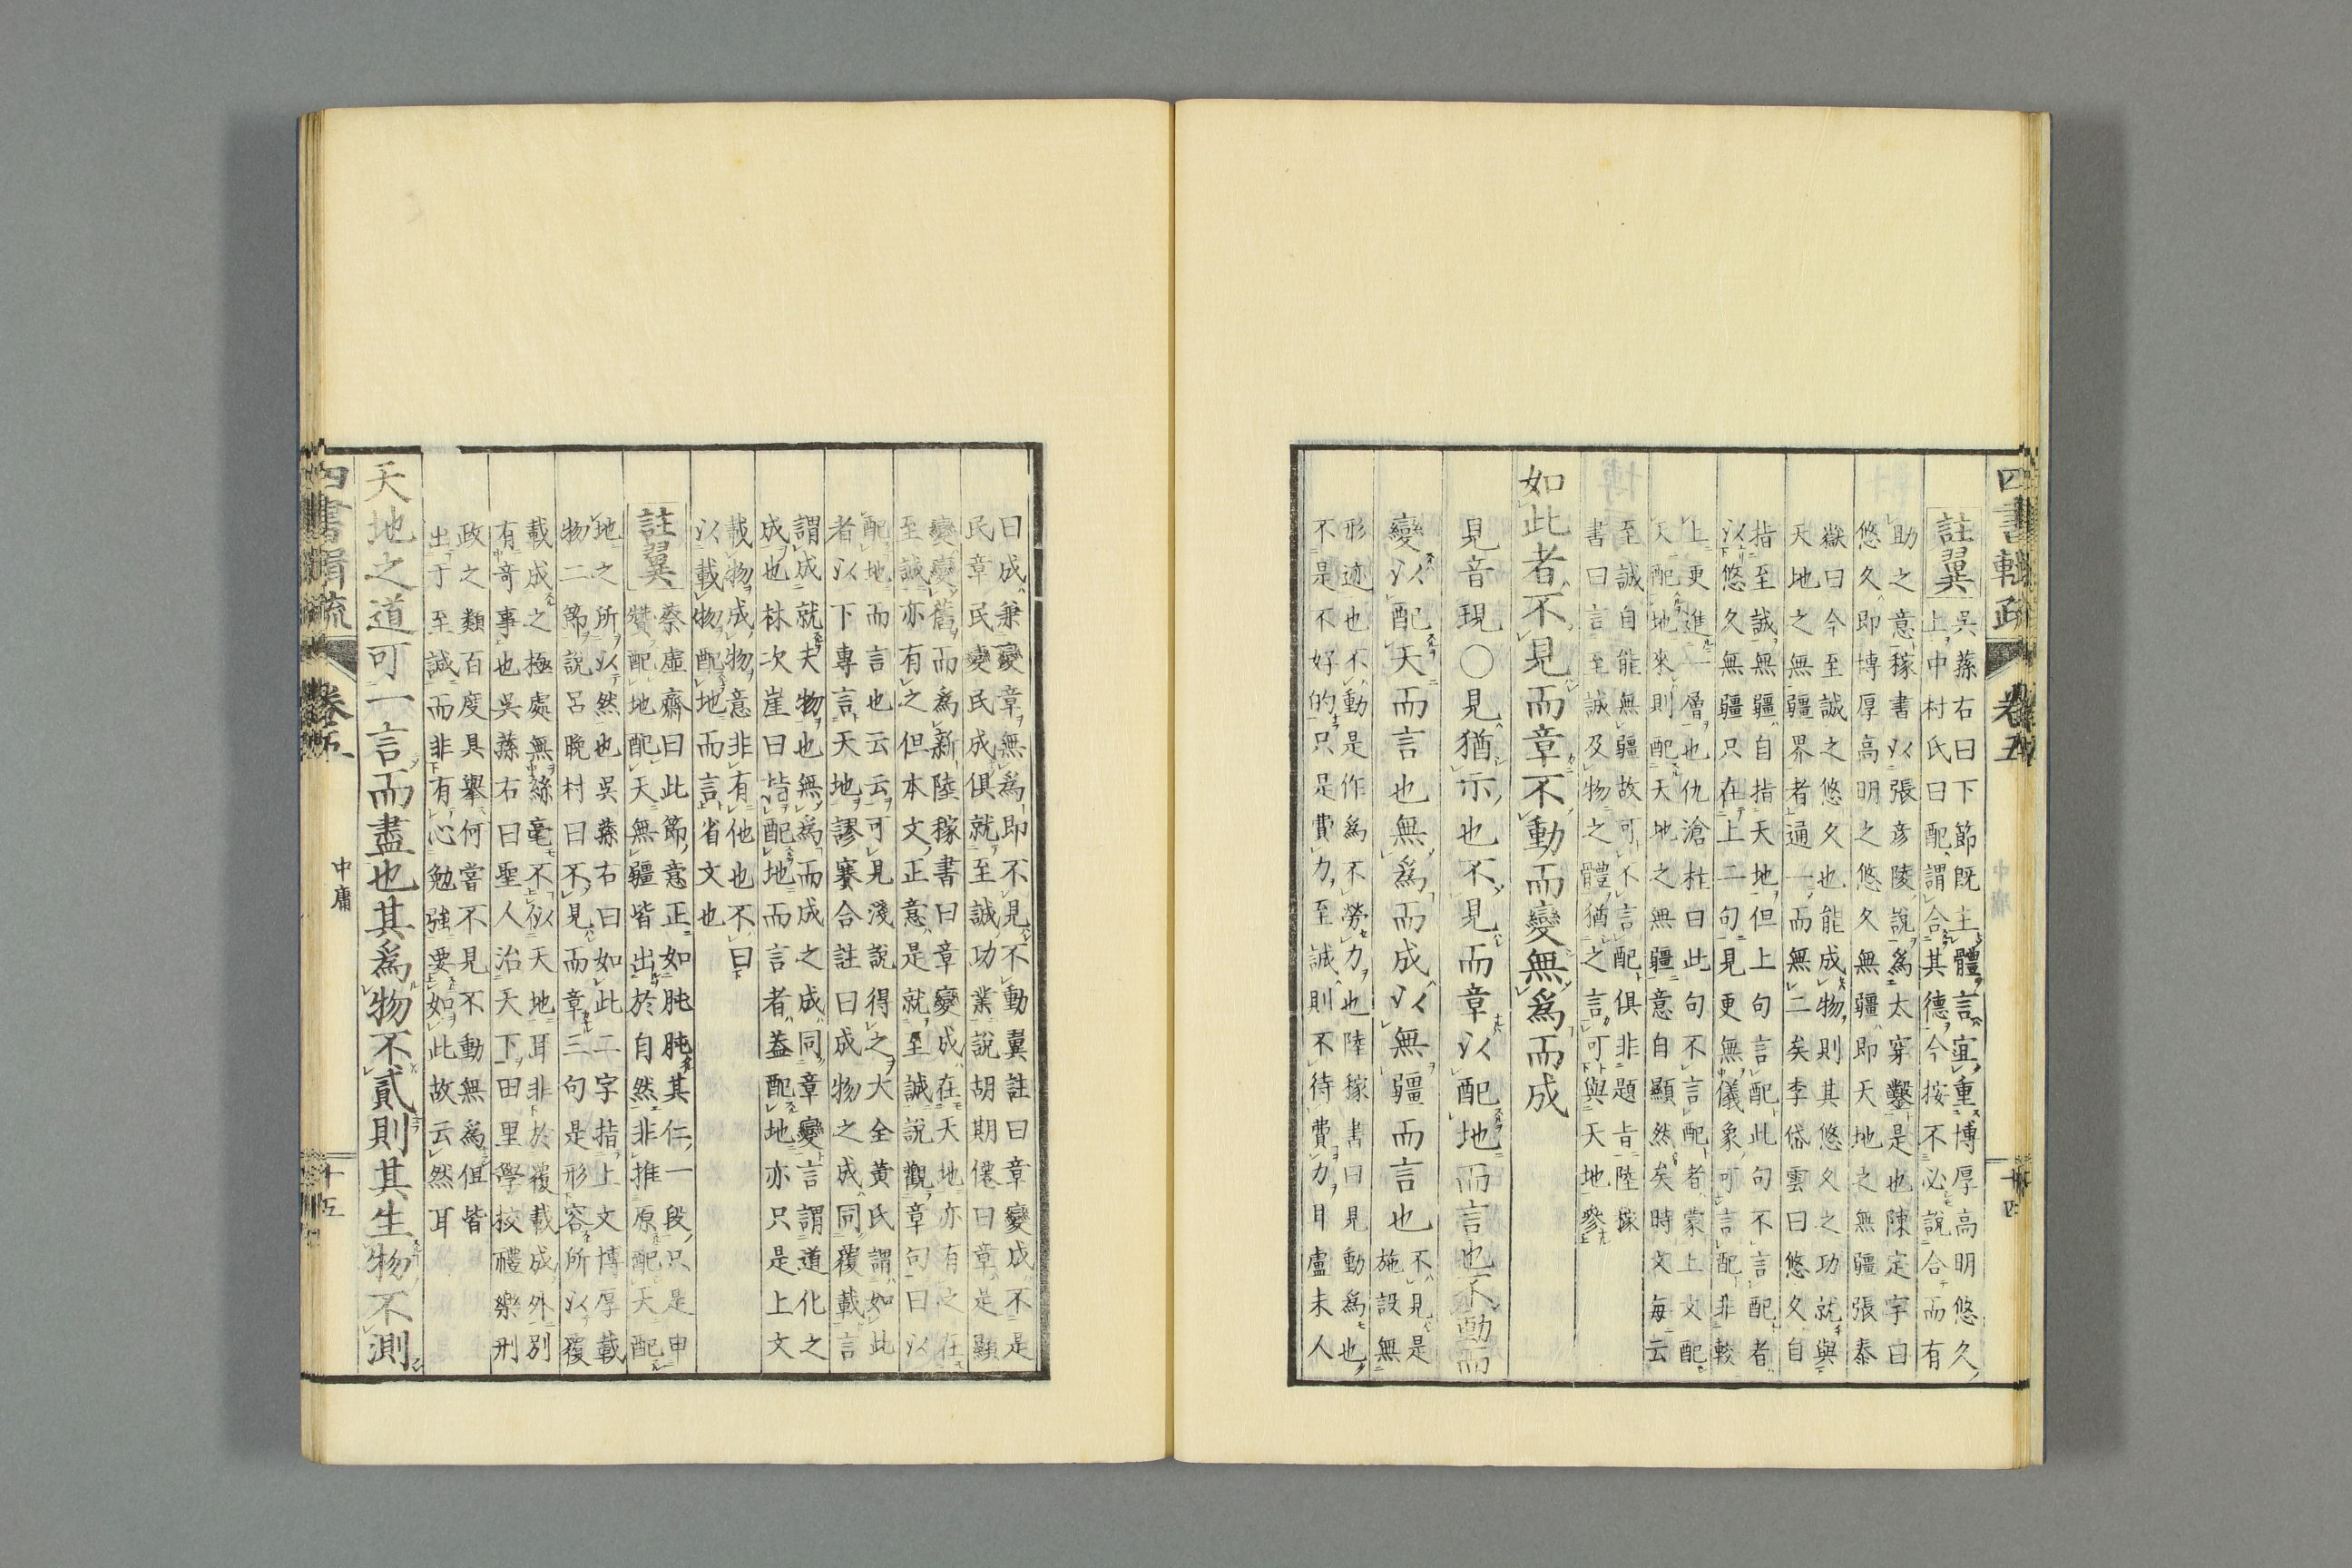 四書輯疏 卷五 十四
註翼 吳蓀右曰下節既主體言宜重博厚高明悠久
上中村氏曰配謂合其德今按不必說合而有
助之意稼書以張彥陵說爲太穿鑿是也陳定宇曰
悠久即博厚高明之悠久無疆即天地之無疆張泰
嶽曰今至誠之悠久也能成物則其悠久之功就與
天地之無疆界者通一而無二矣李岱雲曰悠久自
指至誠無疆自指天地但上句言配此句不言配者
以悠久無疆只在上二句見更無儀象可言配非較
上更進一層也仇滄柱曰此句不言配者蒙上文配
天配地來則配天地之無疆意自顯然矣時文每云
至誠自能無疆故可不言配俱非題旨陸稼
書曰言至誠及物之體猶之言可與天地參
如此者不見而章不動而變無爲而成
見音現○見猶示也不見而章以配地而言也不動而
變以配天而言也無爲而成以無疆而言也 不見是
施設無
形迹也不動是作爲不勞力也陸稼書曰見動爲也
不是不好的只是費力至誠則不待費力耳盧未人
曰成兼變章無爲即不見不動翼註曰章變成不是
民章民變民成俱就至誠功業說胡期僊曰章是顯
變變舊而爲新陸稼書曰章變成在天地亦有之在
至誠亦有之但本文正意是就至誠說觀章句曰以
配地而言也云云可見淺說得之大全黃氏謂如此
者以下專言天地謬蹇合註曰成物之成同覆載言
謂成就夫物也無爲而成之成同章變言謂道化之
成也林次崖曰皆配地而言者蓋配地亦只是上文
載物成物意非有他也不曰
以載物配地而言省文也
註翼 蔡虛齋曰此節意正如肫肫其仁一段只是申
贊配地配天無疆皆出於自然非推原配天配
地之所以然也吳蓀右曰如此二字指上文博厚載
物二節說呂晚村曰不見而章三句是形容所以覆
載成之極處無絲毫不似天地耳非於覆載成外別
有奇事也吳蓀右曰聖人治天下田里學校禮樂刑
政之類百度具舉何嘗不見不動無爲但皆
出于至誠而非有心勉強要如此故云然耳
天地之道可一言而盡也其爲物不貳則其生物不測
四書輯疏 卷五 中庸 十五